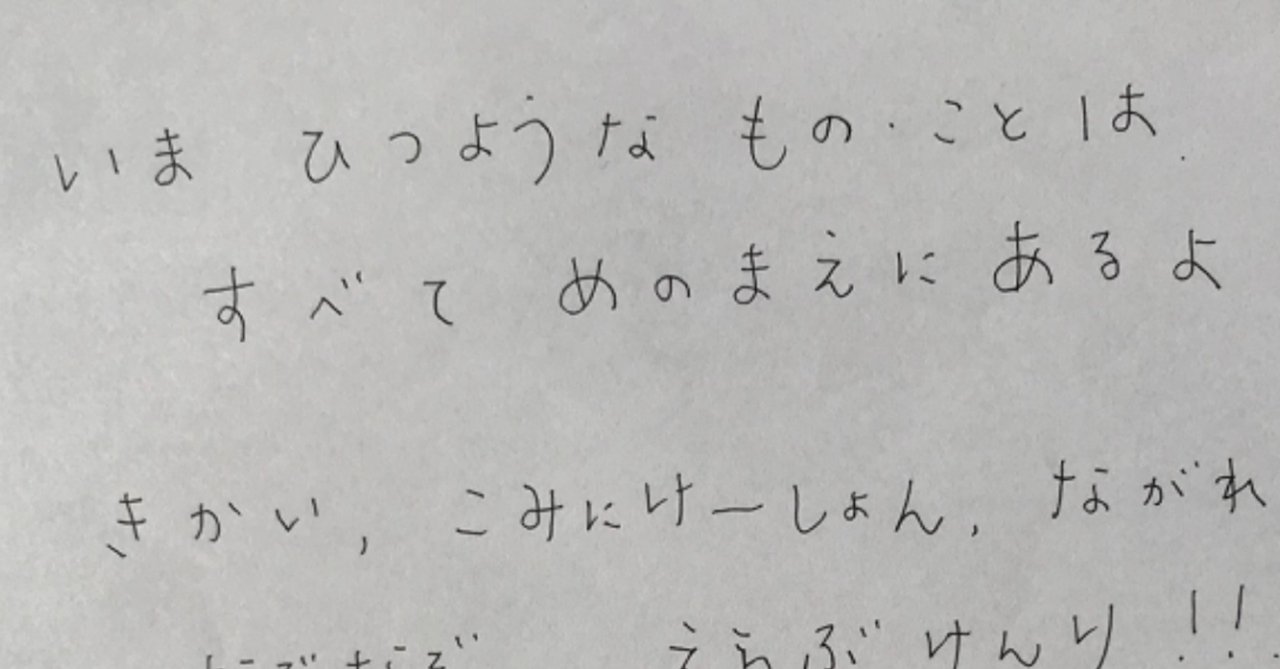 いま ひつような もの・ことは
すべて めのまえに あるよ
きかい, こみにけーしょん, ながれ
えらぶけんり!!